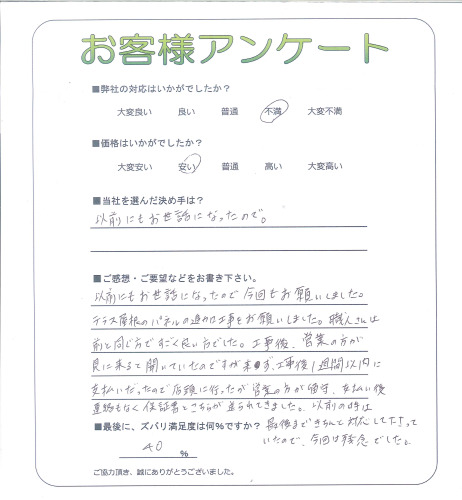 お客様アンケート
■弊社の対応はいかがでしたか?
大変良い 良い 普通 不満 大変不満
■価格はいかがでしたか?
大変安い 安い 普通 高い 大変高い
■当社を選んだ決め手は?
以前にもお世話になったので。
■ご感想・ご要望などをお書き下さい。
以前にもお世話になったので今回もお願いしました。
テラス屋根のパネルの工事をお願いしました。職人さんは
前と同じ方ですごく良い方でした。工事後、営業の方が
見に来ると聞いていたのですが来ず、工事後1週間以内に
支払いだったので店頭に行ったが営業の方が留守、支払い後
連絡もなく保証書とこちらが送られてきました。以前の時は
■最後に、ズバリ満足度は何%ですか?
最後まできちんと対応して下さって
いたので、今回は残念でした。
40 %
ご協力頂き、誠にありがとうございました。